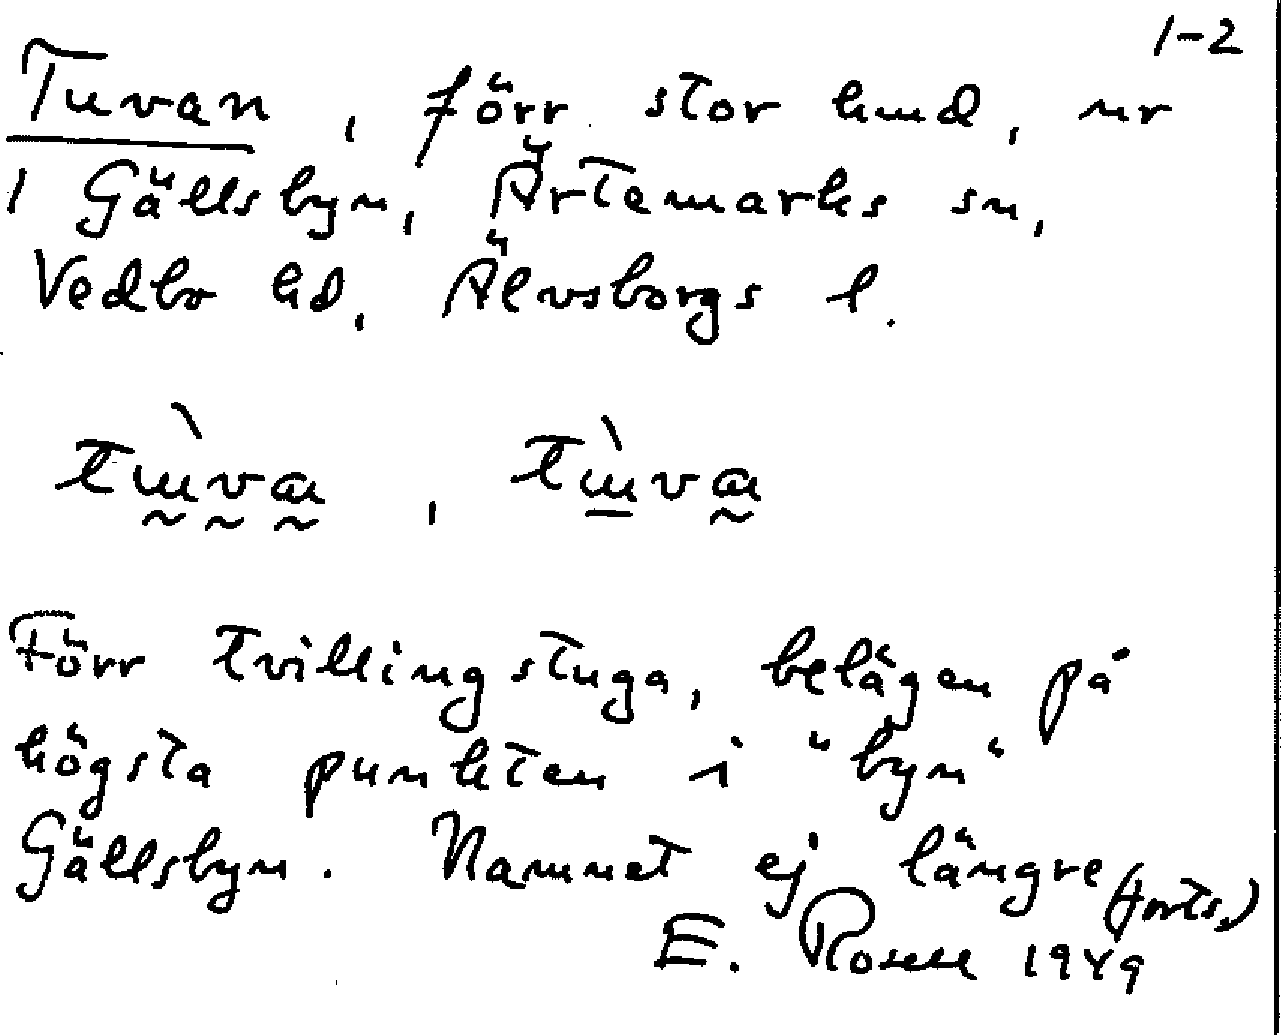 1-2
Tuvan, förr stor hmd, nr
1 Gällsbyn, Ärtemarks sn,
Vedbo hd, Älvsborgs l.
Förr tvillingstuga, belägen på
högsta punkten i "byn"
Gällsbyn. Namnet ej längre (forts.)
E. Rosell 1949